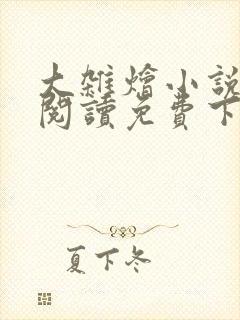 大雜燴小說
閱讀免費下
夏下冬